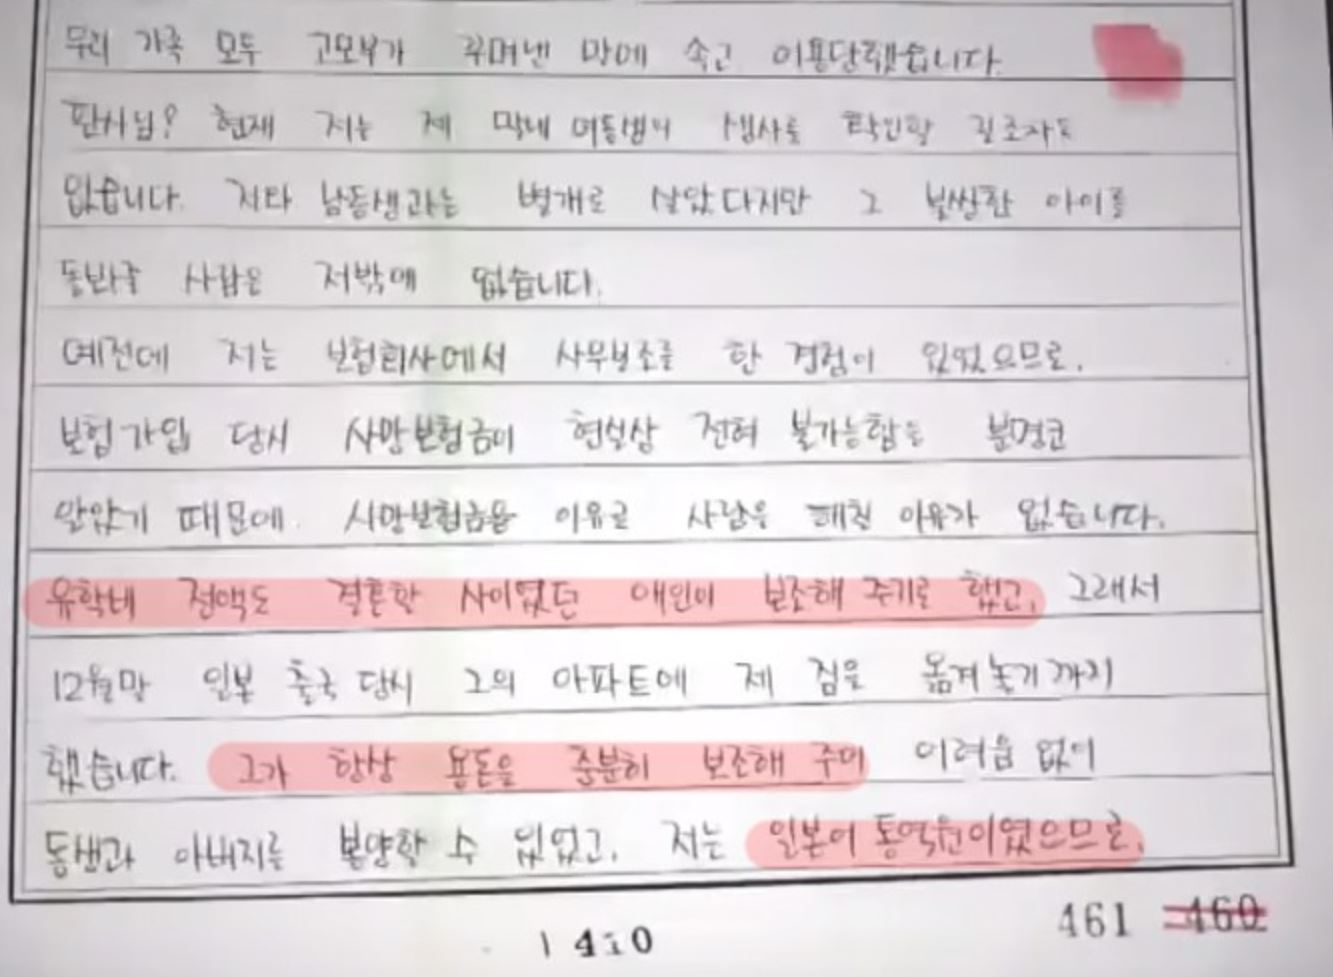 우리 가족 모두 고모부가 꾸며낸 말에 속고 이용당했습니다.
판사님? 현재 저는 제 막내 여동생의 생사를 확인할 길조차도
없습니다. 저와 남동생과는 별개로 살았다지만 그 불쌍한 아이를
돌봐줄 사람은 저밖에 없습니다.
예전에 저는 보험회사에서 사무보조를 한 경험이 있었으므로,
보험가입 당시 사망보험금이 현실상 전혀 불가능함을 분명코
알았기 때문에 사망보험금을 이유로 사람을 해칠 이유가 없습니다.
유학비 전액도 결혼할 사이였던 애인이 보조해 주기로 했고, 그래서
12월말 일본 출국 당시 그의 아파트에 제 짐을 옮겨놓기까지
했습니다. 그가 항상 용돈을 충분히 보조해 주며 어려움 없이
동생과 아버지를 봉양할 수 있었고, 저는 일본어 통역원이였으므로,
461 460
1410